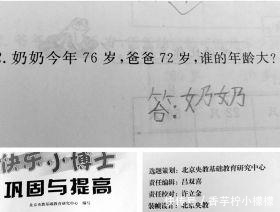 2. 奶奶今年 76 岁,爸爸 72 岁,谁的年龄大?
答:奶奶
快乐小博士
巩固与提高
北京央教基础教育研究中心 编写
选题策划:北京央教基础教育研究中心
责任编辑:吕双喜
责任校对:许立金
装帧设计:北京央教